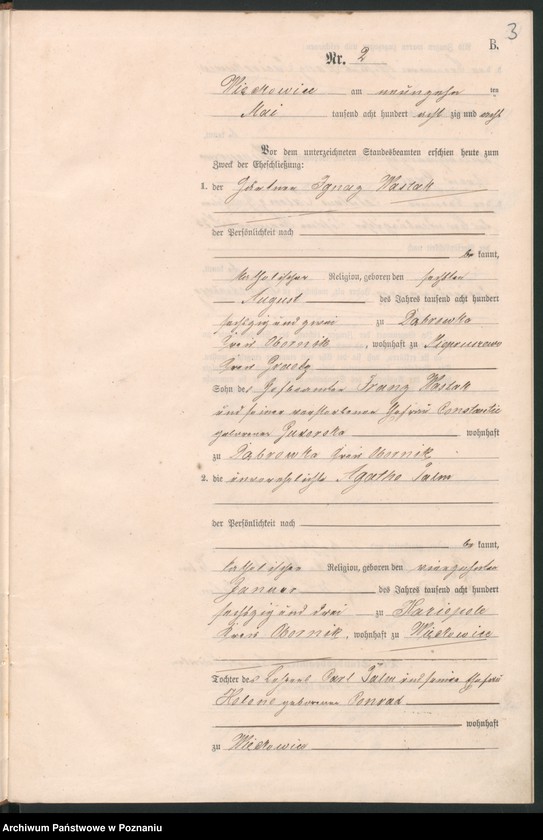 3
B.
Nr. 2
am neunzehn ten
Mai tausend acht hundert acht zig und acht
Vor dem unterzeichneten Standesbeamten erschien heute zum
Zweck der Eheschließung:
1. der Ignaz Wastak
der Persönlichkeit nach
be kannt,
katholischer Religion, geboren den sechsten
August des Jahres tausend acht hundert
sechszig und zwei zu Dabrowka
Kreis Obornik, wohnhaft zu
Kreis Graetz
Sohn des Franz Wastak
und seiner verstorbenen Ehefrau
geborenen wohnhaft
zu Dabrowka Kreis Obornik
2. die unverehelichte Agathe Talm
der Persönlichkeit nach
be kannt,
katholischer Religion, geboren den vierzehnten
Januar des Jahres tausend acht hundert
sechszig und drei zu
Kreis Obornik, wohnhaft zu
Tochter des Carl Talm und seiner Ehefrau
Helene geborenen Conrad
wohnhaft
zu
Archiwum Państwowe w Poznaniu